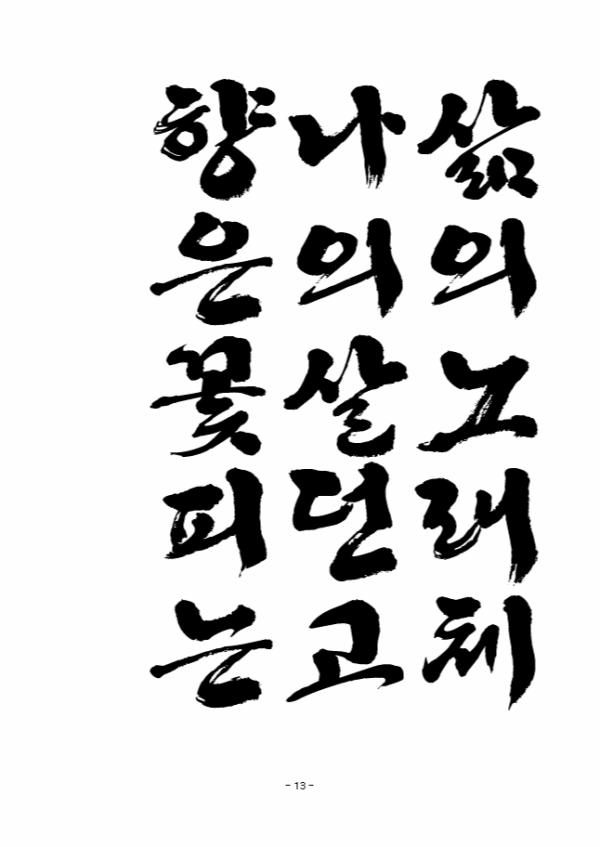 삶의노래체
나의살던고
향은꽃피는
- 13 -